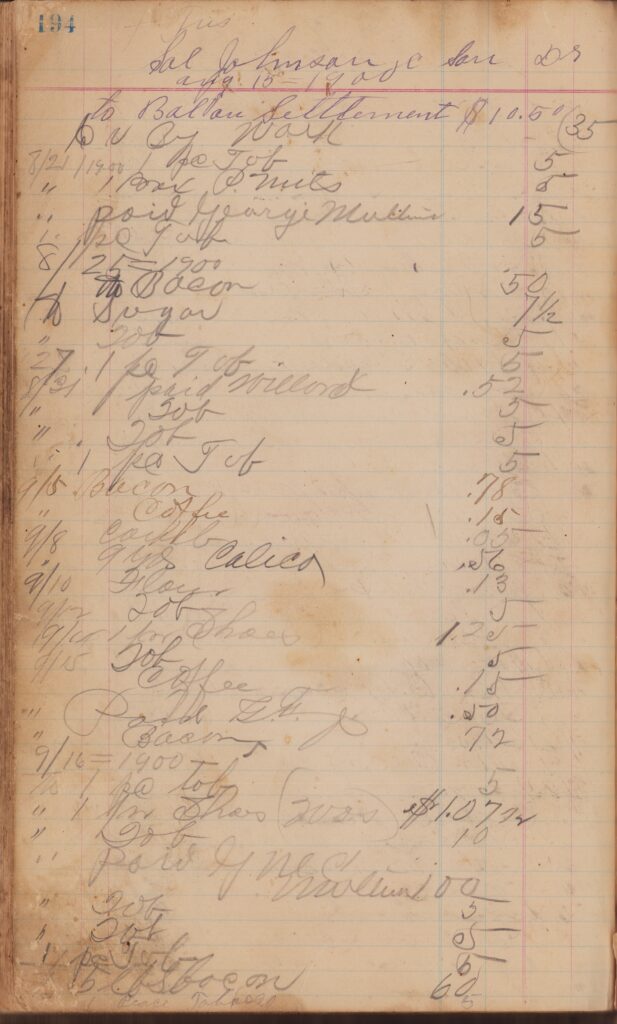 194
Sal Johnson & Son Dr
aug 15 = 1900
to Ballan Settlement $10.50 (35
By Work
8/21/1900 1 pc Tob 5
" 1 Box P. nuts 5
" paid George Mullins 15
1 pc Tob 5
8/25 = 1900
Bacon .50
Sugar 7 1/2
" Tob 5
27 1 pc Tob 5
8/31 paid Willard .52
" Tob 5
" Tob 5
1 pc Tob 5
9/5 Bacon .78
" Coffe .15
9/8 .05
" 9 yds Calico .56
9/10 Flour .13
9/12 Tob 5
1 pr Shoes 1.25
Tob 5
9/15 Coffee .15
" Paid .50
" Bacon 72
9/16 = 1900
1 pc tob 5
" 1 pr Shoes $1.07 1/2
" Tob 10
" paid Mullins 1 00
" Tob 5
" Tob 5
1 pc Tob 5
5 lbs bacon 60
5